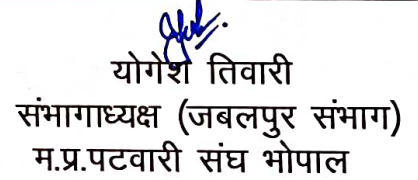 योगेश तिवारी
संभागाध्यक्ष (जबलपुर संभाग)
म.प्र.पटवारी संघ भोपाल